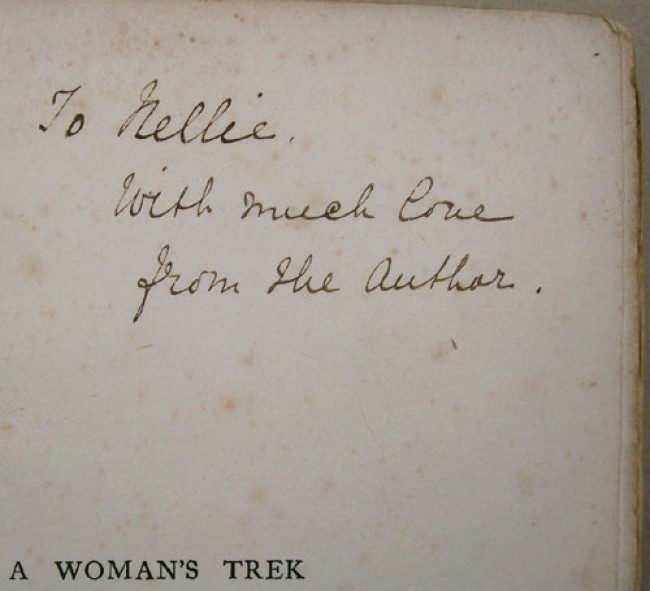 To Nellie.
With much love
from the Author.
A WOMAN'S TREK